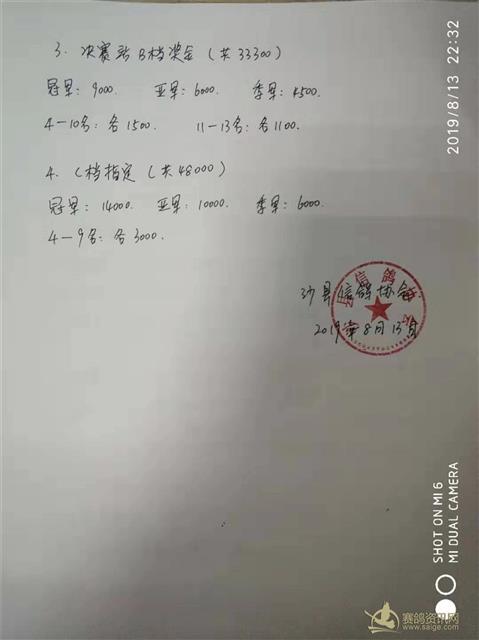 3. 决赛站B档奖金（共33300）
冠军：9000. 亚军：6000. 季军：4500.
4—10名：各1500. 11—13名：各1100.
4. C档指定（共48000）
冠军：14000. 亚军：10000. 季军：6000.
4—9名：各3000.
沙县信鸽协会
2019年8月13日
2019/8/13 22:32
SHOT ON MI 6
MI DUAL CAMERA
赛鸽资讯网
www.saige.com